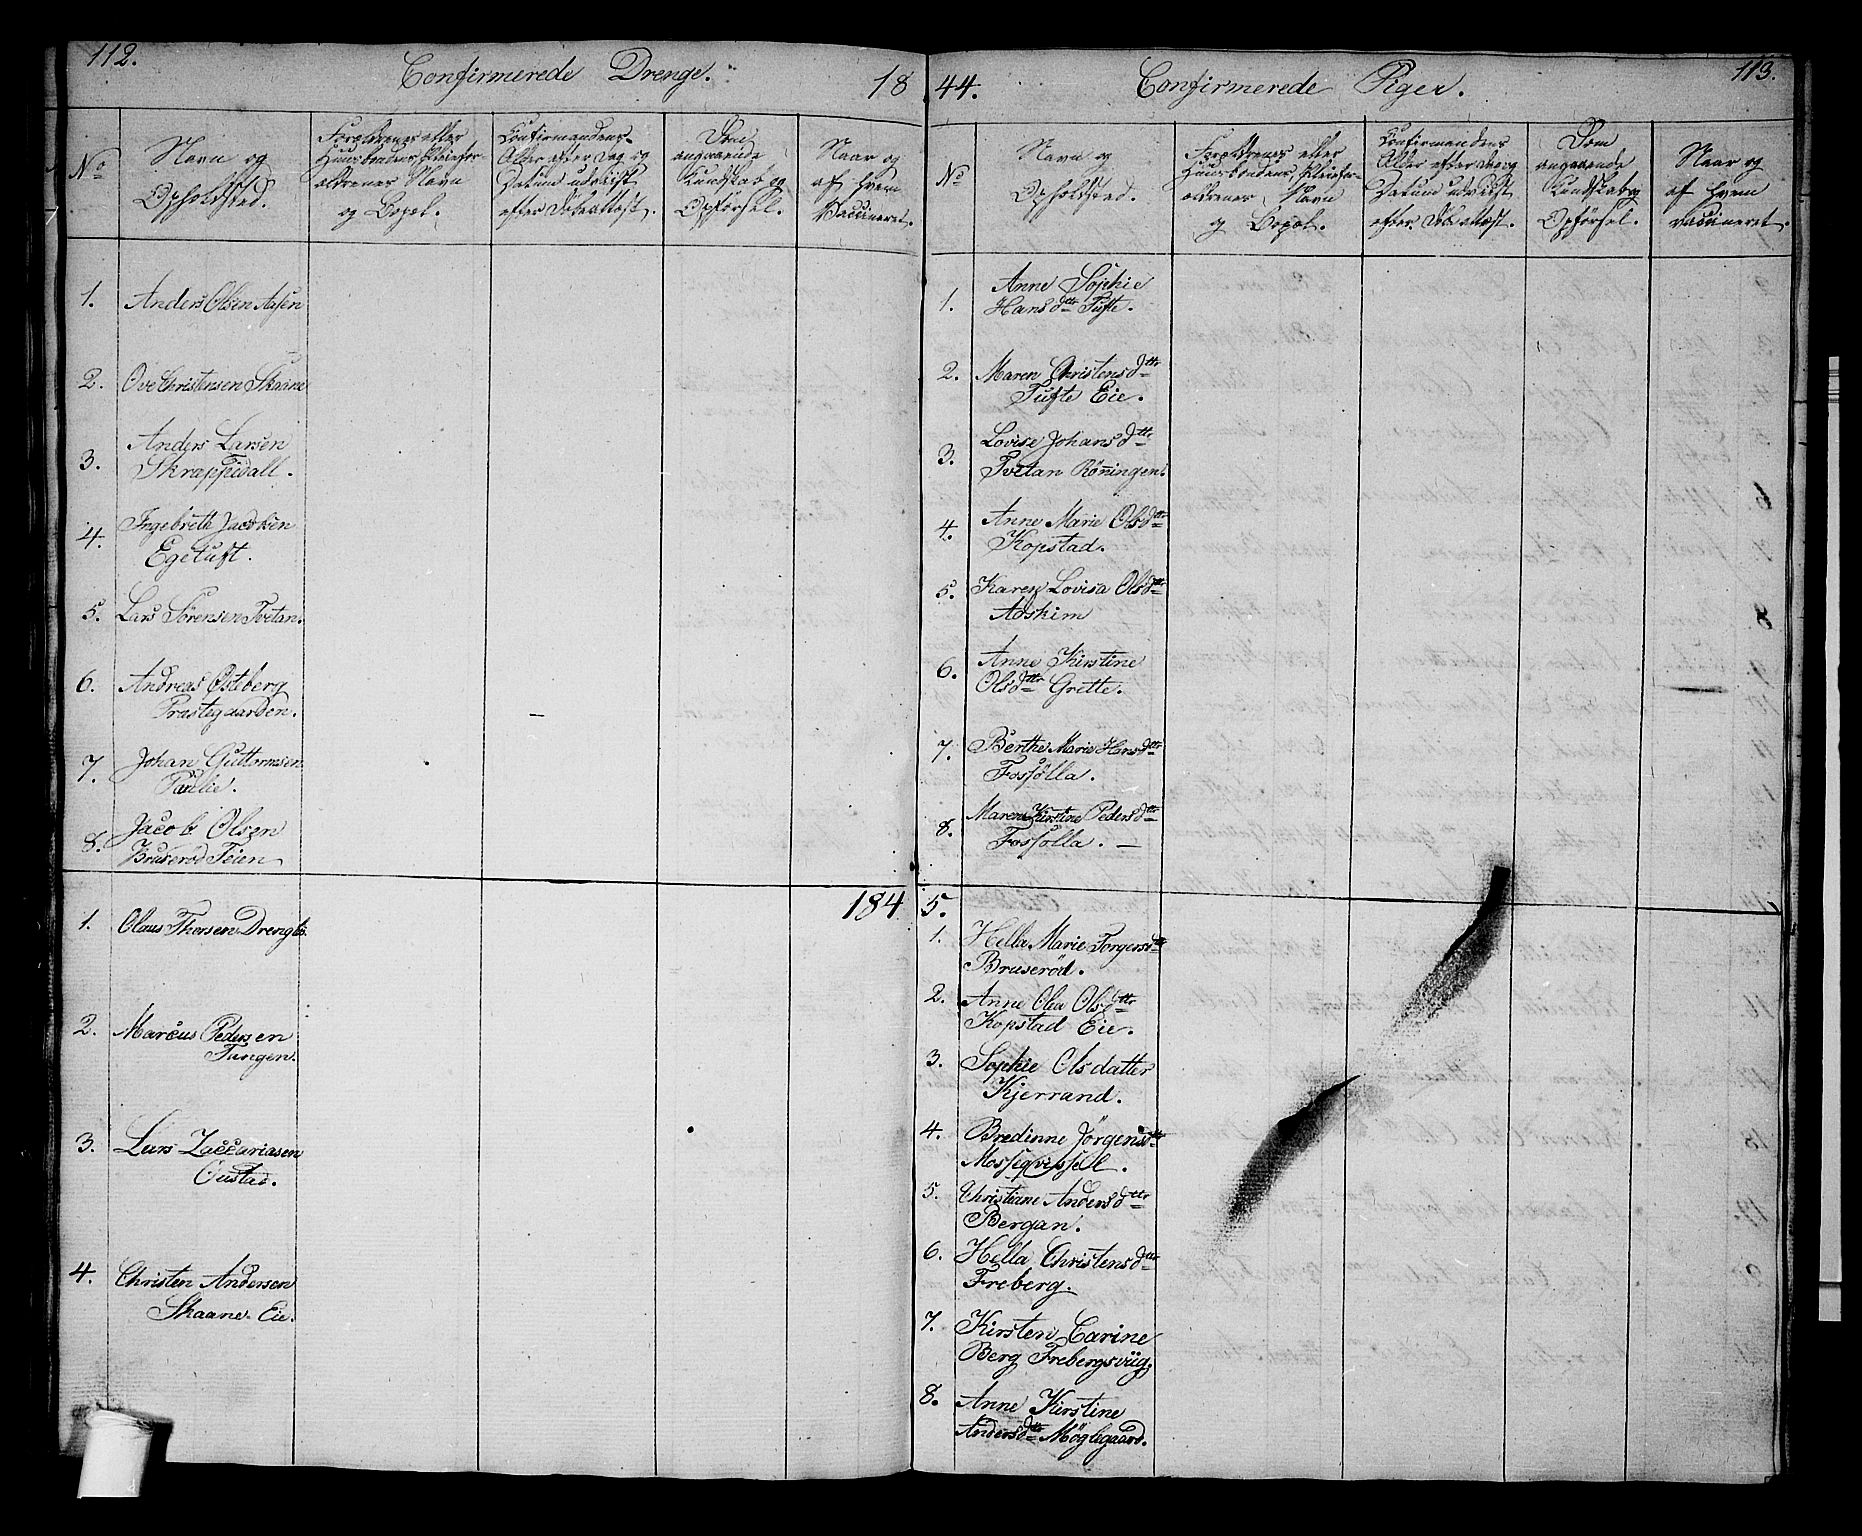 112.
Confirmerede Drenge.
18
No
Navn og
Opholdsted.
Forældrenes eller
og Bopel.
Confirmandens
Alder efter Dag og
Datum udviist
efter Døbeattest.
Dom
angaaende
Kundskab og
Opførsel.
Naar og
af hvem
Vaccineret.
1. Anders Olsen Aasen
2. Ove Christensen Skaane
3. Anders Larsen
Skrappedall.
4. Ingebreth Jacobsen
Egetuft.
5. Lars Sørensen Tvetan.
6. Andreas Østberg
Præstegaarden.
7. Johan Guttormsen
Paulie.
8. Jacob Olsen
Bruserød Teien
184
1. Olaus Thorsen Drengsb.
2. Marcus Pedersen
Tangen.
3. Lars Zaccariasen
Oustad.
4. Christen Andersen
Skaane Eie.
113.
44.
Confirmerede Piger.
No
Navn og
Opholdsted.
Forældrenes eller
og Bopel.
Confirmandens
Alder efter Dag og
Datum udviist
efter Døbeattest.
Dom
angaaende
Kundskab og
Opførsel.
Naar og
af hvem
vaccineret.
1. Anne Sophie
Hansdtr Tufte.
2. Maren Christensdtr
Tufte Eie.
3. Lovise Johansdtr
Tvetan Röningen.
4. Anne Marie Olsdtr
Kopstad.
5. Karen Lovisa Olsdtr
Adskim
6. Anne Kirstine
Olsdtr Grette.
7. Berthe Marie Hansdtr
Fossølla.
8. Maren Kirstine Pedersdtr
Fossolla. —
5.
1. Hella Marie Torgersdtr
Bruserød.
2. Anne Olea Olsdtr
Kopstad Eie.
3. Sophie Olsdatter
Kjerrand.
4. Bredinne Jörgensdtr
5. Christiane Andersdtr
Bergan.
6. Hella Christensdtr
Freberg.
7. Kirsten Carine
Berg Frebergsviig.
8. Anne Kirstine
Andersdtr Møglegaard.